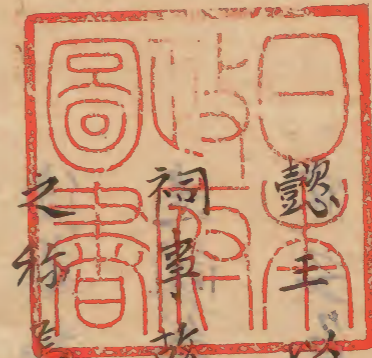 日本
政府
圖書
懿王
祠
之称